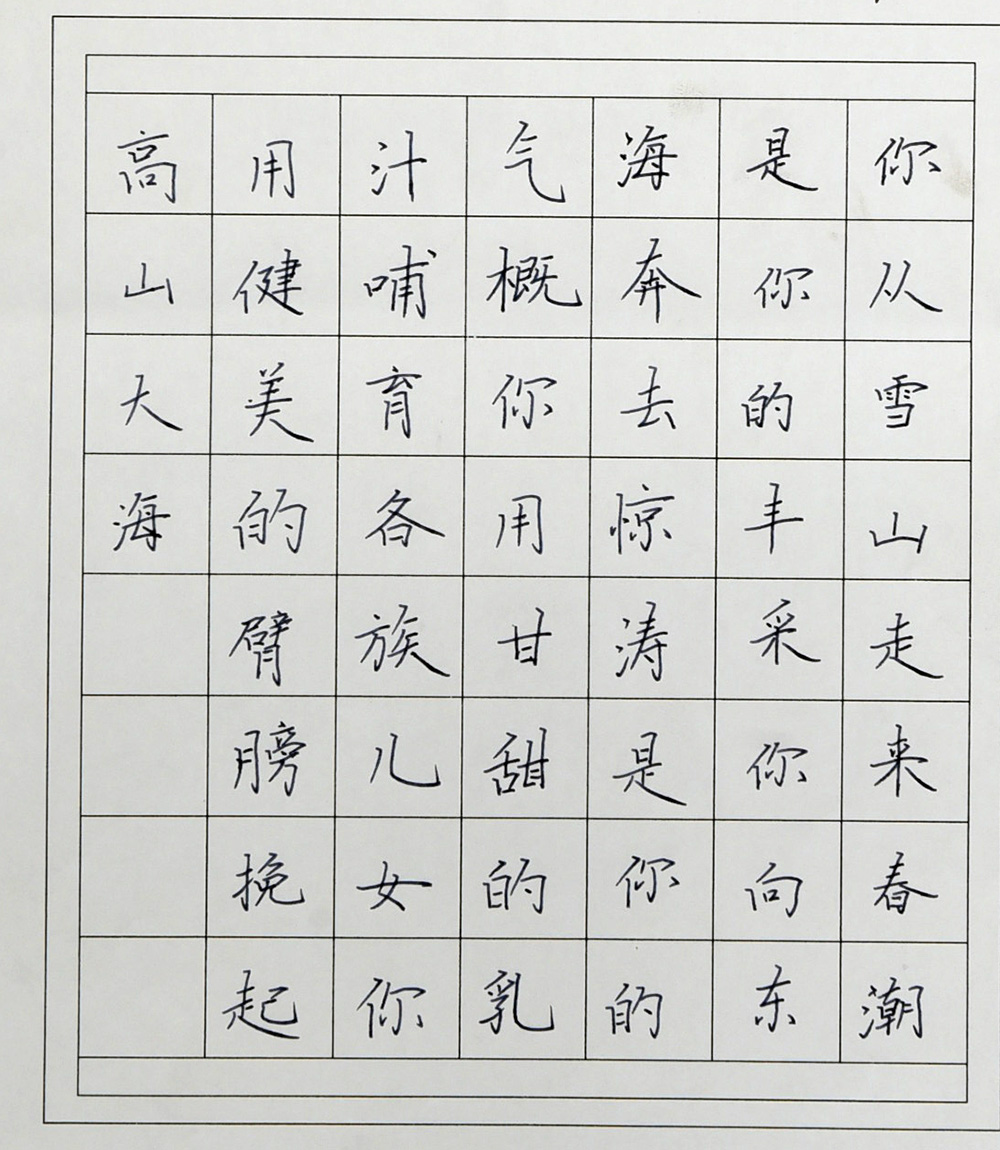 你从雪山走来春潮
是你的丰采你向东
海奔去惊涛是你的
气概你用甘甜的乳
汁哺育各族儿女你
用健美的臂膀挽起
高山大海